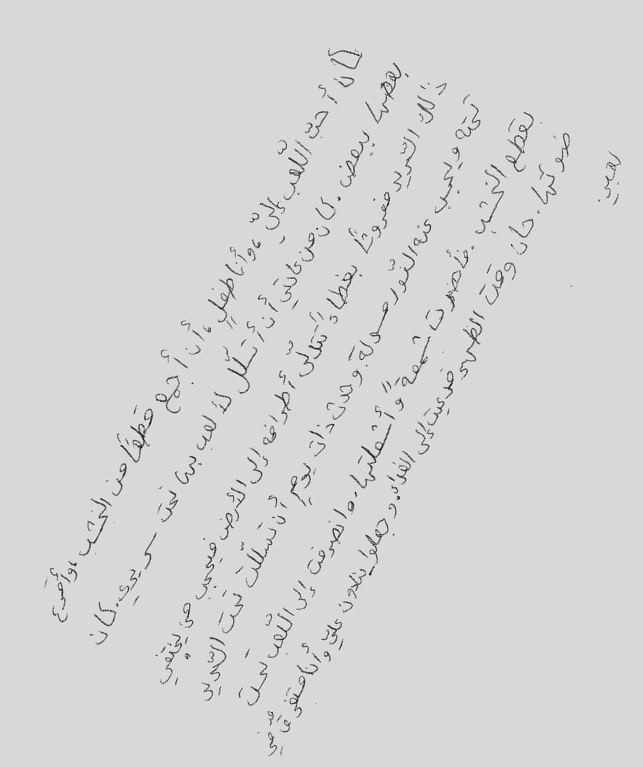 كان أحبّ اللّعب إليّ، وأنا طفل، أن أجمع قطعًا من الخشب، وأقرع
بعضها ببعض. كان من عادتي أن أتسلّل لألعب بها تحت سريري. كان
ذلك السّرير مفروشًا بغطاء تتدلّى أطرافه إلى الأرض فيحجب من يختفي
تحته ويحجب عنه النّور حدث ذات يوم أن تسلّلت تحت السّرير
بقطع الخشب. فأحضرت شمعة وأشعلتها. وانصرفت إلى اللّعب تحت
ضوئها. حان وقت الظهر فدعيت إلى الغداء. وجعلوا ينادون عليّ وأنا مستغرق في
لعبي